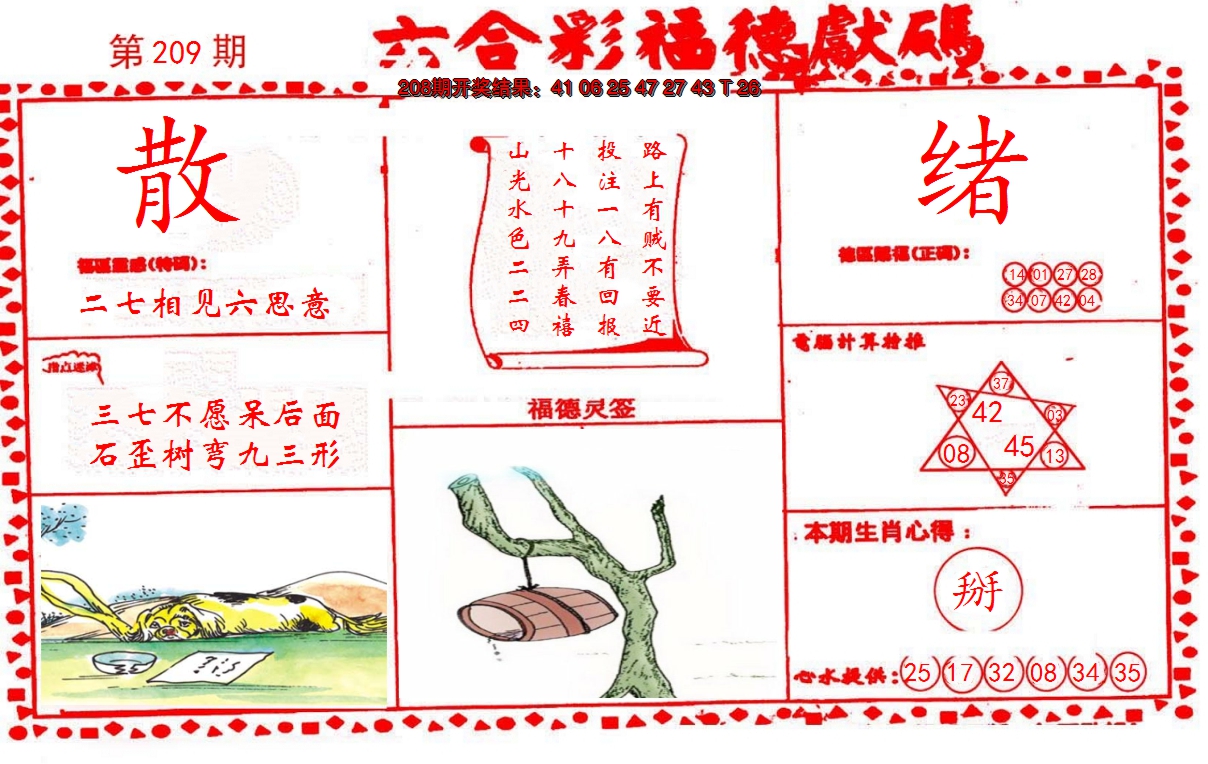 第 209 期
六合彩福德獻碼
208期开奖结果：41 06 25 47 27 43 T 26
散
福區靈感(特碼)：
二七相见六思意
路上有贼不要近
投注一八有回报
十八十九弄春禧
山光水色二二四
绪
德區賜福(正碼)：
14 01 27 28
34 07 42 04
指点迷津
三七不愿呆后面
石歪树弯九三形
福德灵签
電腦計算推
37
23 42 03
08 45 13
35
本期生肖心得：
掰
心水提供：25 17 32 08 34 35